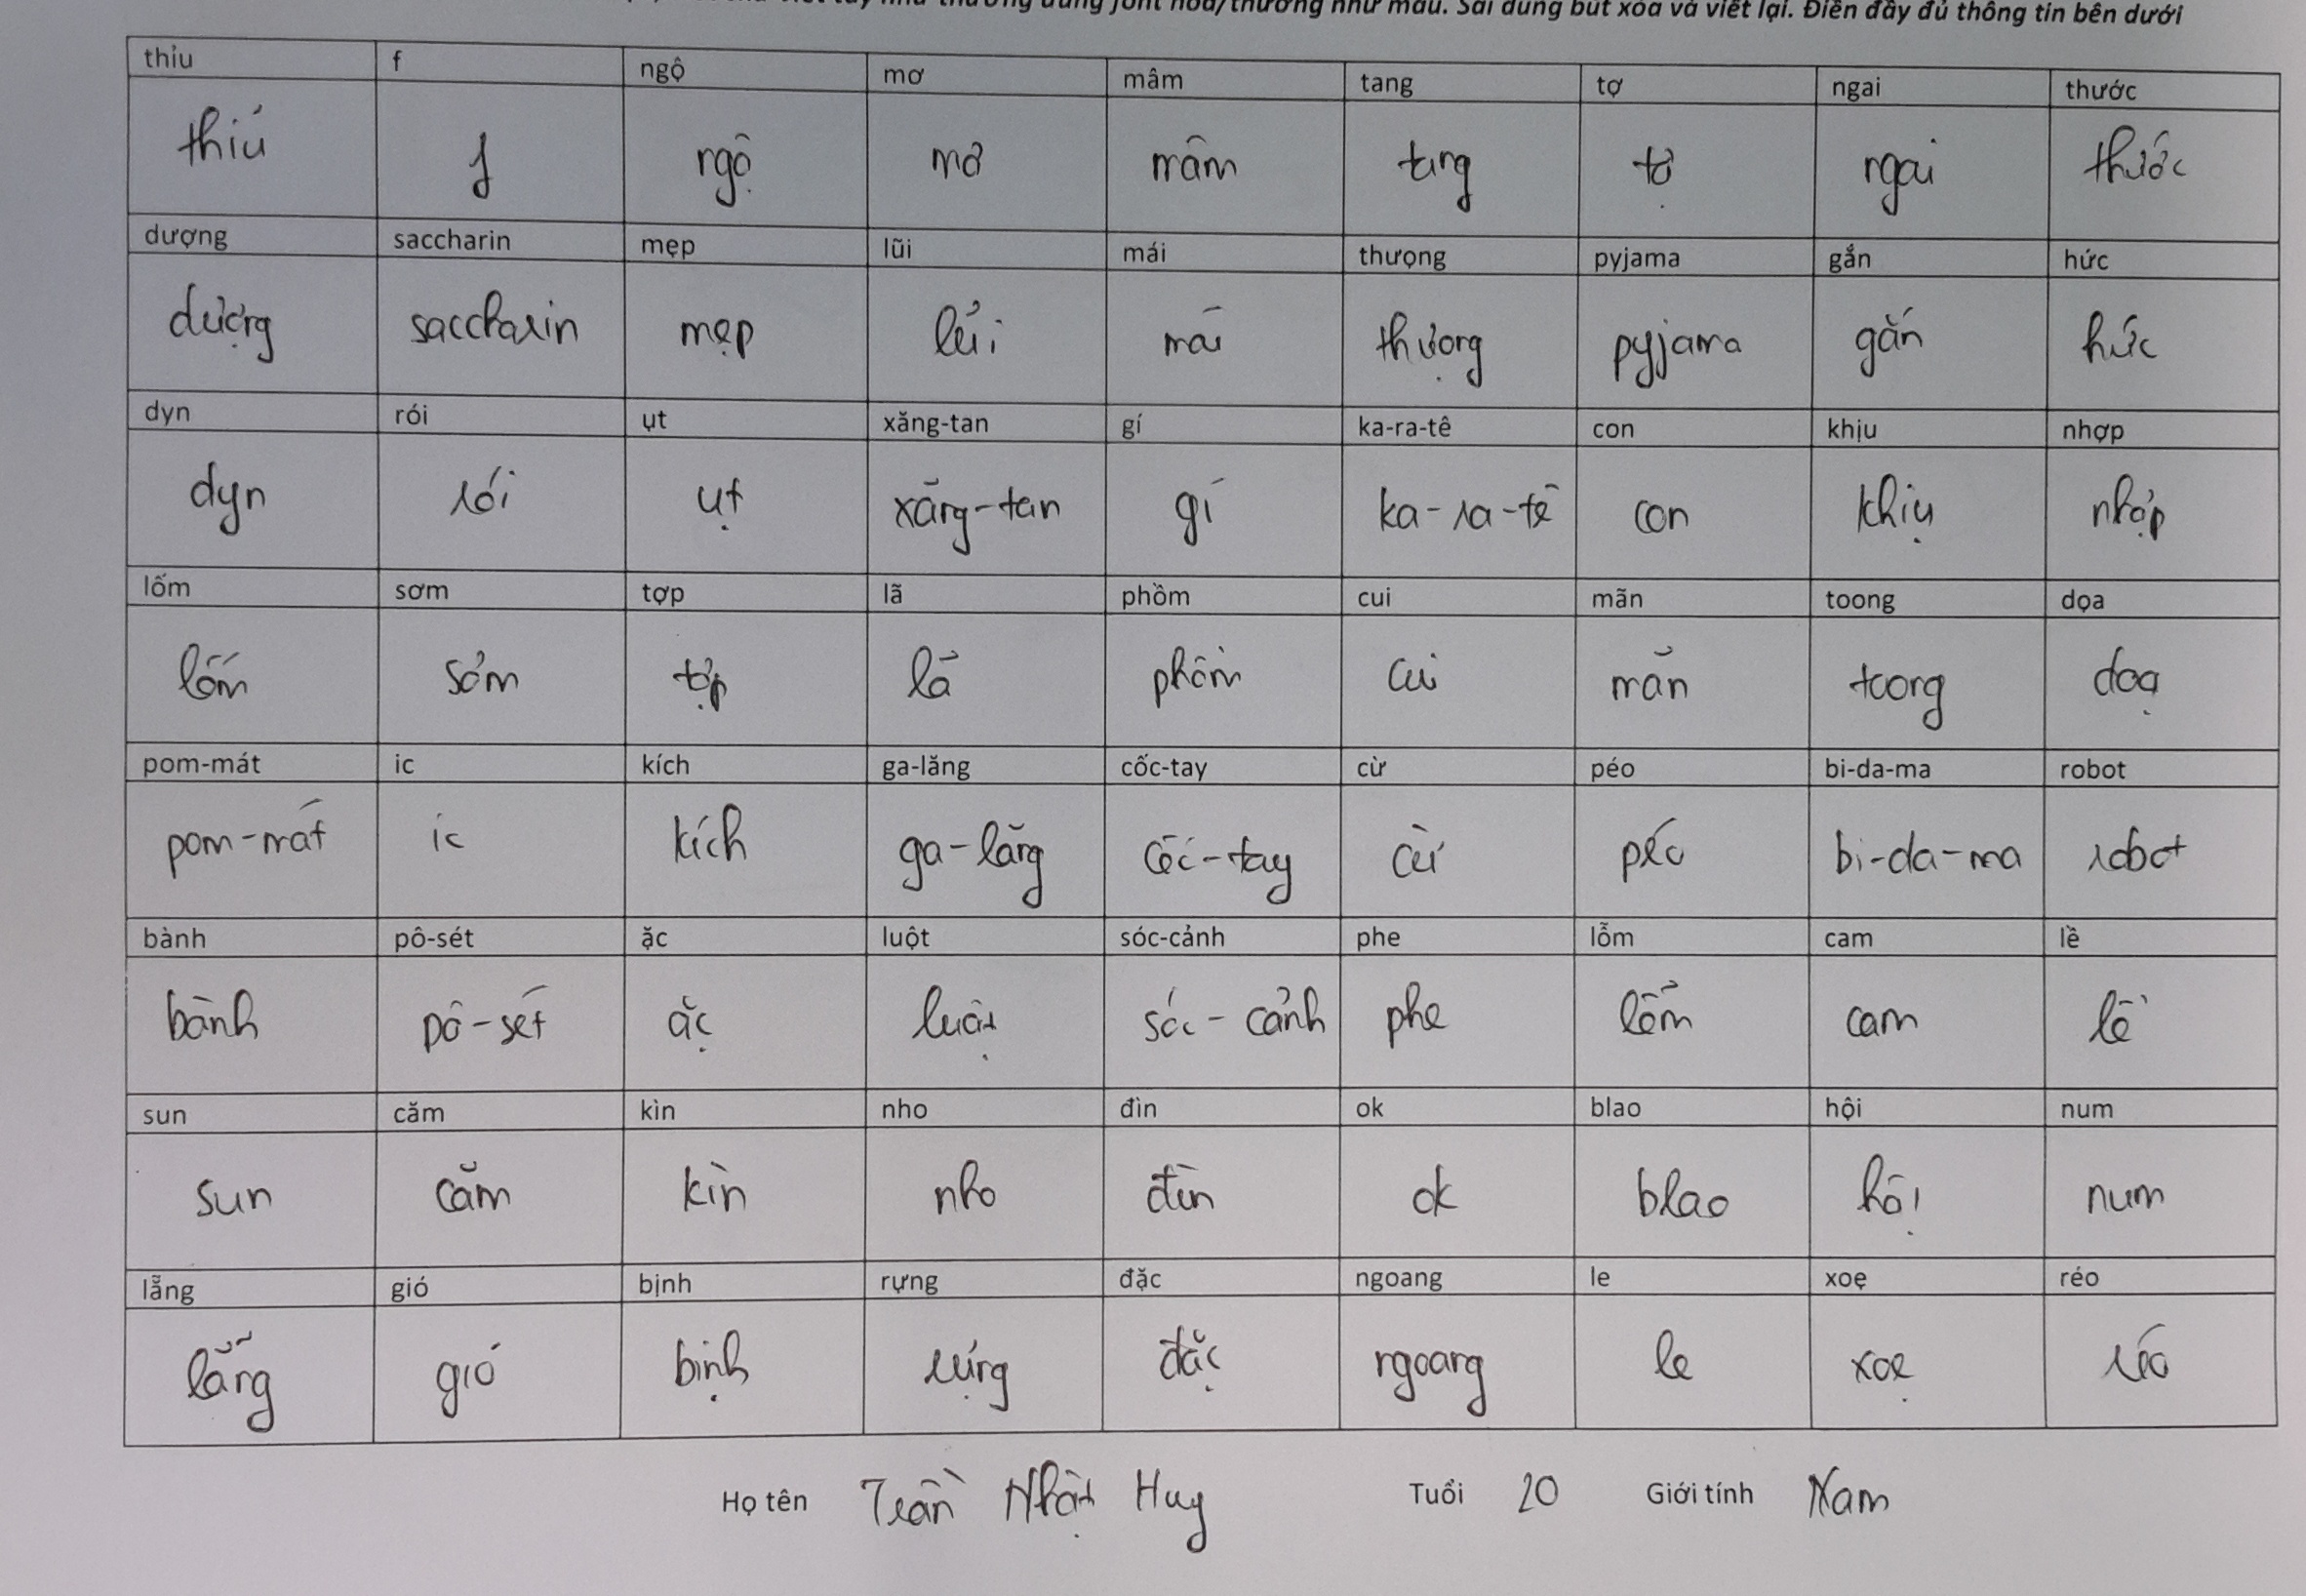 font hoa/thường như mẫu. Sai dùng bút xóa và viết lại. Điền đầy đủ thông tin bên dưới
thỉu f ngộ mơ mâm tang tợ ngai thước
thỉu f ngộ mơ mâm tang tợ ngai thước
dượng saccharin mẹp lũi mái thượng pyjama gắn hức
dượng saccharin mẹp lũi mái thượng pyjama gắn hức
dyn rói ụt xăng-tan gí ka-ra-tê con khịu nhợp
dyn rói ụt xăng-tan gí ka-ra-tê con khịu nhợp
lốm sơm tợp lã phồm cui mãn toong dọa
lốm sơm tợp lã phồm cui mãn toong doạ
pom-mát ic kích ga-lăng cốc-tay cừ péo bi-da-ma robot
pom-mát ic kích ga-lăng cốc-tay cừ péo bi-da-ma robot
bành pô-sét ặc luột sóc-cảnh phe lỗm cam lề
bành pô-sét ặc luột sóc-cảnh phe lỗm cam lề
sun căm kìn nho đìn ok blao hội num
sun căm kìn nho đìn ok blao hội num
lẵng gió bịnh rựng đặc ngoang le xoẹ réo
lẵng gió bịnh rựng đặc ngoang le xoẹ réo
Họ tên Trần Nhật Huy Tuổi 20 Giới tính Nam